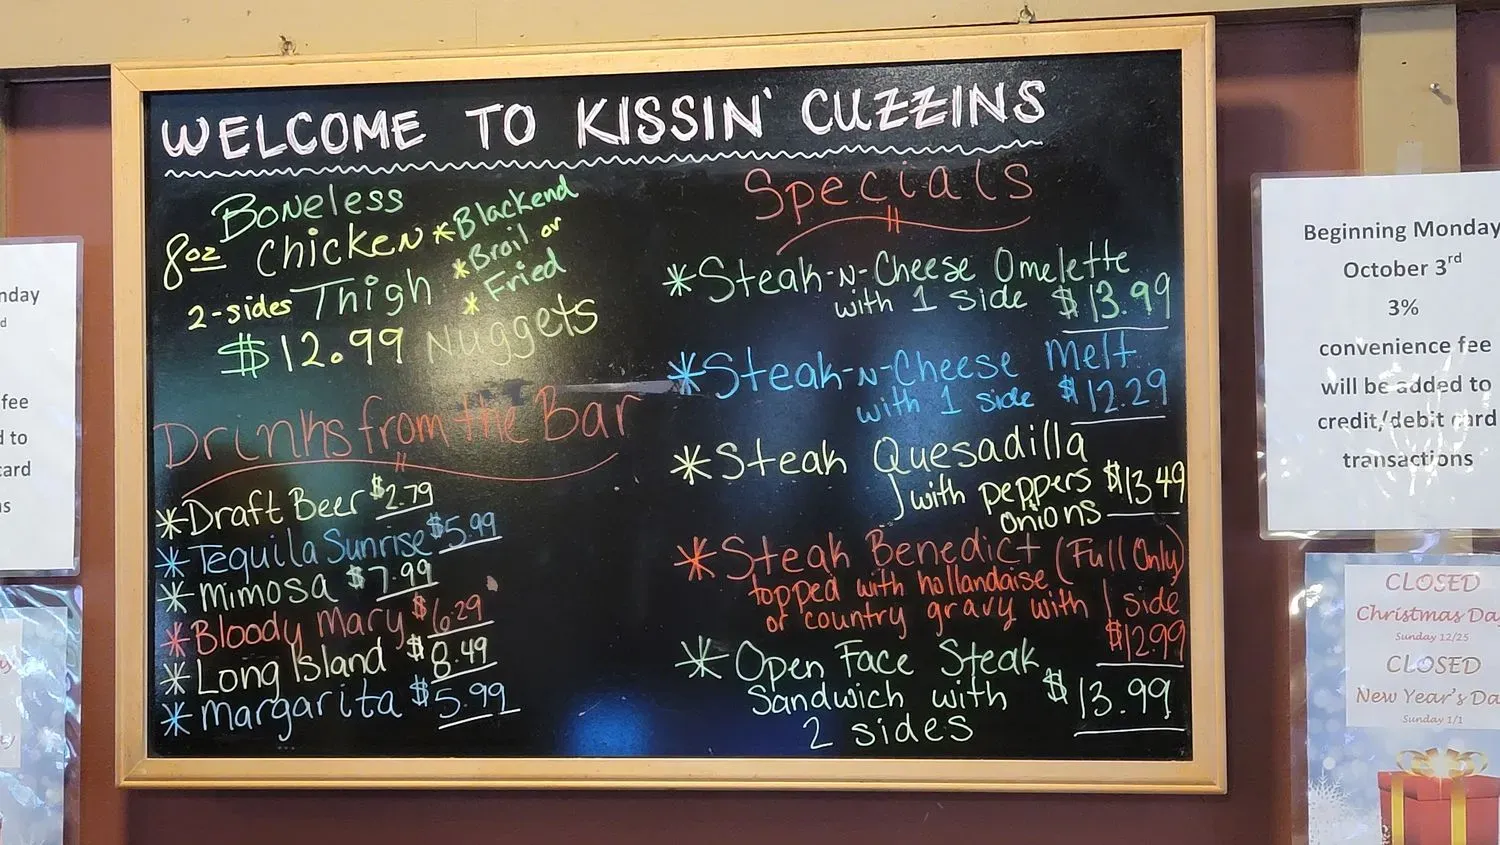 WELCOME TO KISSIN' CUZZINS
Boneless
8oz Chicken
2-sides Thigh
$12.99 Nuggets
*Blackend
*Broil or
*Fried
Drinks from the Bar
*Draft Beer $2.79
*Tequila Sunrise $5.99
*Mimosa $7.99
*Bloody Mary $6.29
*Long Island $8.49
*Margarita $5.99
Specials
*Steak-N-Cheese Omelette
with 1 side $13.99
*Steak-N-Cheese Melt
with 1 side $12.29
*Steak Quesadilla
with peppers $13.49
onions
*Steak Benedict (Full Only)
topped with hollandaise
or country gravy with 1 side
$12.99
*Open Face Steak
Sandwich with $13.99
2 sides
Beginning Monday
October 3rd
3%
convenience fee
will be added to
credit/debit card
transactions
CLOSED
Christmas Day
Sunday 12/25
CLOSED
New Year's Da
Sunday 1/1
nday
d
fee
d to
card
ns